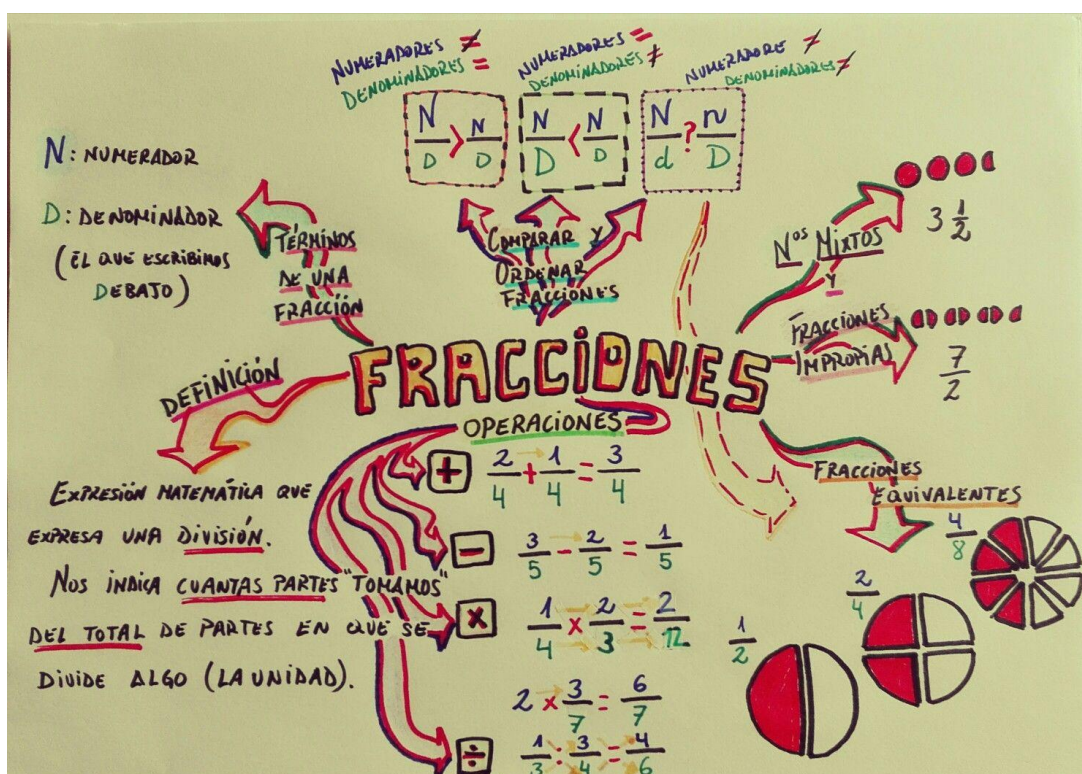 NUMERADORES ≠
DENOMINADORES =
NUMERADORES =
DENOMINADORES ≠
NUMERADORE ≠
DENOMINADORES ≠
N/D > N/D
N/D < N/D
N/d ? n/D
N: NUMERADOR
D: DENOMINADOR
(EL QUE ESCRIBIMOS
DEBAJO)
TÉRMINOS
DE UNA
FRACCIÓN
COMPARAR Y
ORDENAR
FRACCIONES
NOS MIXTOS
Y
3 1/2
FRACCIONES
IMPROPIAS
7/2
FRACCIONES
DEFINICIÓN
EXPRESIÓN MATEMÁTICA QUE
EXPRESA UNA DIVISIÓN.
NOS INDICA CUANTAS PARTES "TOMAMOS"
DEL TOTAL DE PARTES EN QUE SE
DIVIDE ALGO (LA UNIDAD).
OPERACIONES
+ 2/4 + 1/4 = 3/4
- 3/5 - 2/5 = 1/5
x 1/4 x 2/3 = 2/12
2 x 3/7 = 6/7
÷ 1/3 : 3/4 = 4/6
FRACCIONES
EQUIVALENTES
4/8
2/4
1/2